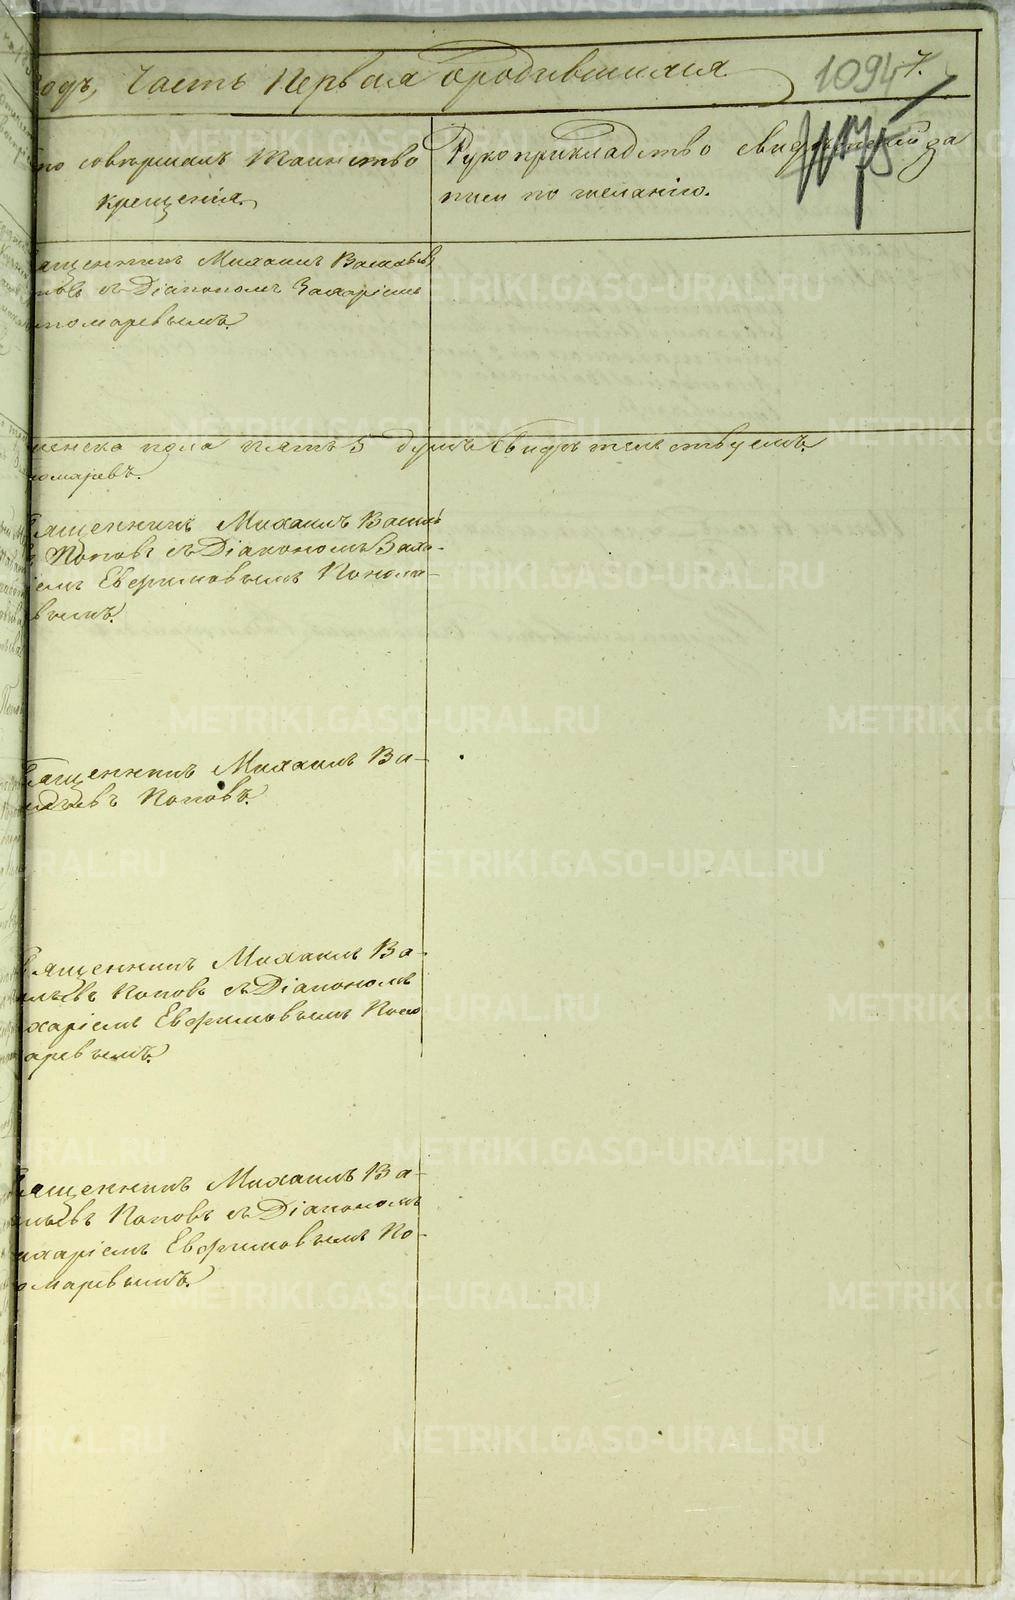 одъ, Часть Первая о родившихся.
1094 7.
то совершалъ таинство
крещенія.
Рукоприкладство свидѣтелей за
писи по желанію.
ященникъ Михаилъ Васильевъ
повъ съ Діакономъ Захаріемъ
ономаревымъ.
женска пола пять 5 душъ свидѣтельствуемъ.
омаревъ.
ященникъ Михаилъ Василь
въ Поповъ съ Діакономъ Заха-
ріемъ Евфимовымъ Понома-
вымъ.
Священникъ Михаилъ Ва-
ильевъ Поповъ.
ященникъ Михаилъ Ва-
ильевъ Поповъ съ Діакономъ
харіемъ Евфимовымъ Поно
аревымъ.
ященникъ Михаилъ Ва-
ильевъ Поповъ съ Діакономъ
ахаріемъ Евфимовымъ По-
омаревымъ.
METRIKI.GASO-URAL.RU